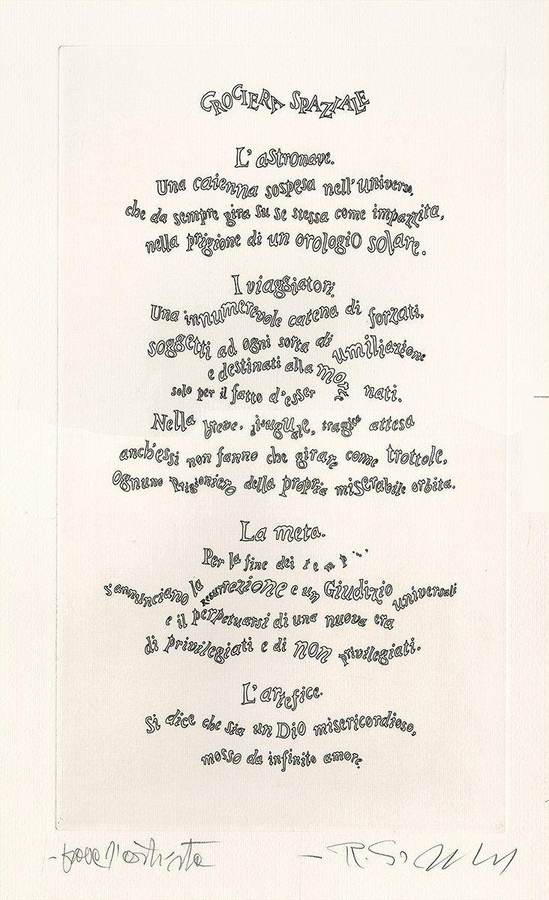 CROCIERA SPAZIALE
L'astronave.
Una caienna sospesa nell'universo,
che da sempre gira su se stessa come impazzita,
nella prigione di un orologio solare.
I viaggiatori.
Una innumerevole catena di forzati,
soggetti ad ogni sorta di umiliazione
e destinati alla morte
solo per il fatto d'esser nati.
Nella breve, inuguale, tragica attesa
anch'essi non fanno che girare come trottole,
ognuno prigioniero della propria miserabile orbita.
La meta.
Per la fine dei temp...
s'annunciano la resurrezione e un Giudizio universali
e il perpetuarsi di una nuova era
di privilegiati e di non privilegiati.
L'artefice.
Si dice che sia un Dio misericordioso,
mosso da infinito amore.
-prova d'artista - R.